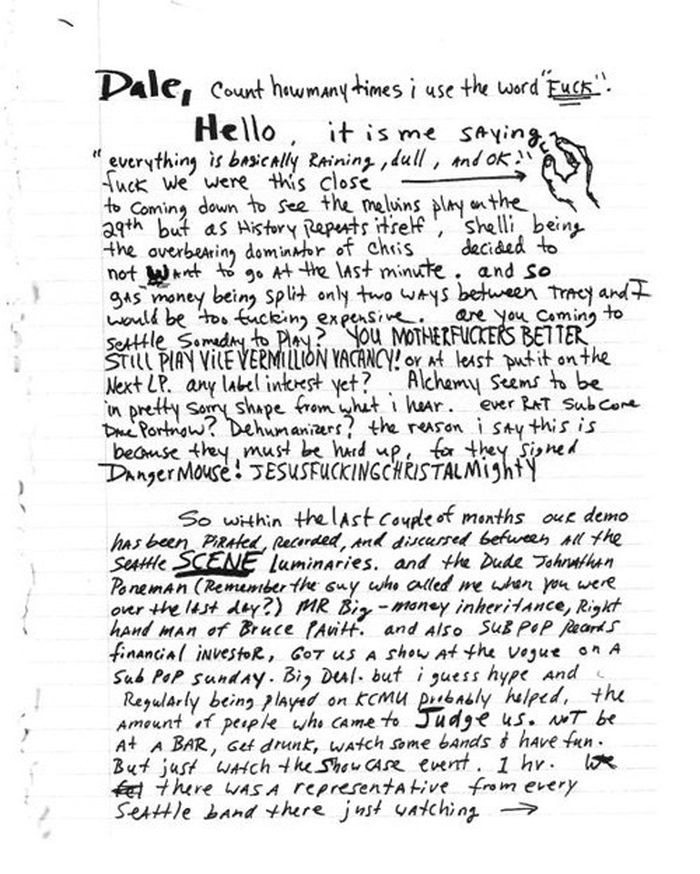 Dale, Count how many times i use the word "Fuck".
Hello, it is me saying
"everything is basically Raining, dull, and OK."
fuck we were this close
to coming down to see the melvins play on the
29th but as History Repeats itself, Shelli being
the overbearing dominator of Chris decided to
not want to go at the last minute. and so
gas money being split only two ways between Tracy and I
would be too fucking expensive. are you coming to
seattle Someday to Play? YOU MOTHERFUCKERS BETTER
STILL PLAY VILE VERMILLION VACANCY! or at least put it on the
Next LP. any label interest yet? Alchemy seems to be
in pretty sorry shape from what i hear. ever RAT Subcore
Portnow? Dehumanizers? the reason i say this is
because they must be hard up, for they signed
Danger Mouse! JESUSFUCKINGCHRISTALMighty
So within the last couple of months our demo
has been Pirated, recorded, and discussed between all the
Seattle SCENE luminaries. and the Dude Johnathan
Poneman (Remember the guy who called me when you were
over the last day?) MR Big-money inheritance, Right
hand man of Bruce Pavitt. and also SUB POP Records
financial investor, Got us a show at the Vogue on a
Sub Pop Sunday. Big Deal. but i guess hype and
Regularly being played on KCMU probably helped, the
amount of people who came to Judge us. NOT be
at a BAR, Get drunk, watch some bands & have fun.
But just watch the showcase event. 1 hr. We
there was a representative from every
Seattle band there just watching →